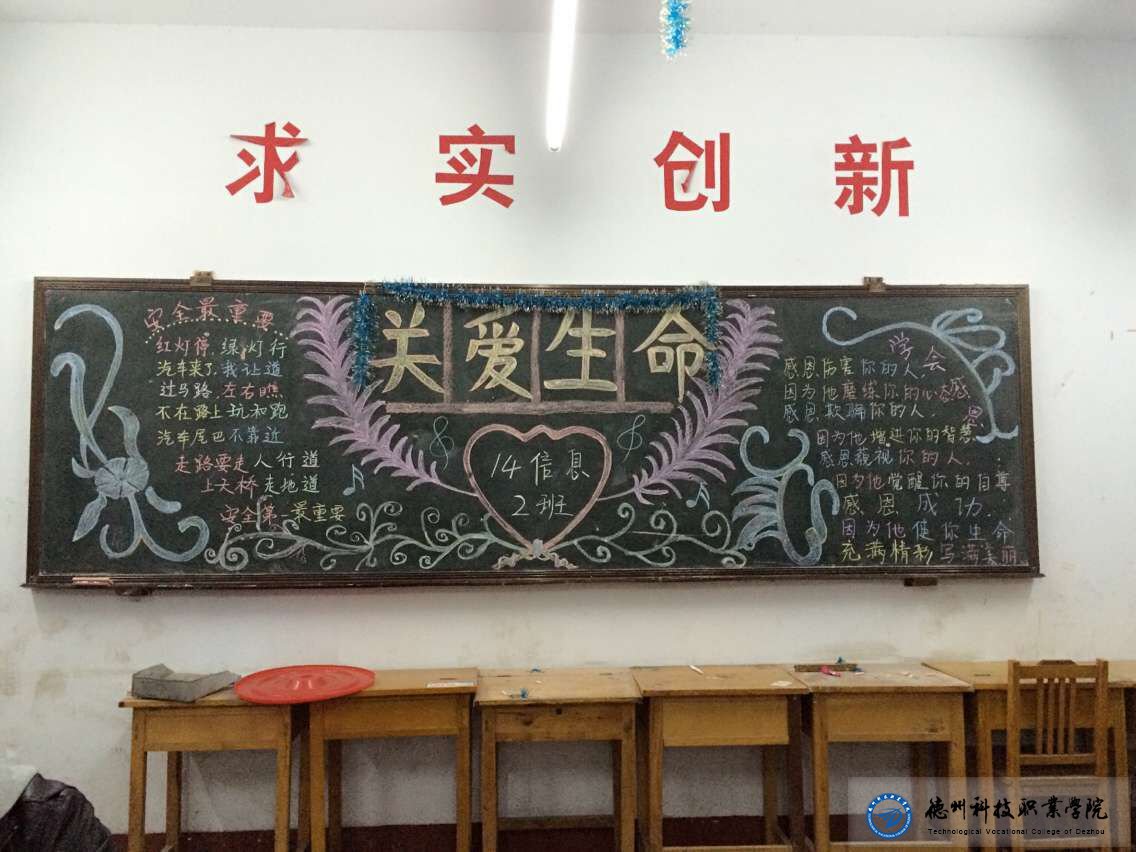 求实创新
关爱生命
安全最重要
红灯停,绿灯行
汽车来了,我让道
过马路,左右瞧
不在路上玩和跑
汽车尾巴不靠近
走路要走人行道
上天桥走地道
安全第一最重要
14信息
2班
学会感恩
感恩伤害你的人,
因为他磨练你的心态
感恩欺骗你的人.
因为他增进你的智慧
感恩藐视你的人.
因为他觉醒你的自尊
感恩成功.
因为他使你生命
充满精彩写满美丽
德州科技职业学院
Technological Vocational College of Dezhou